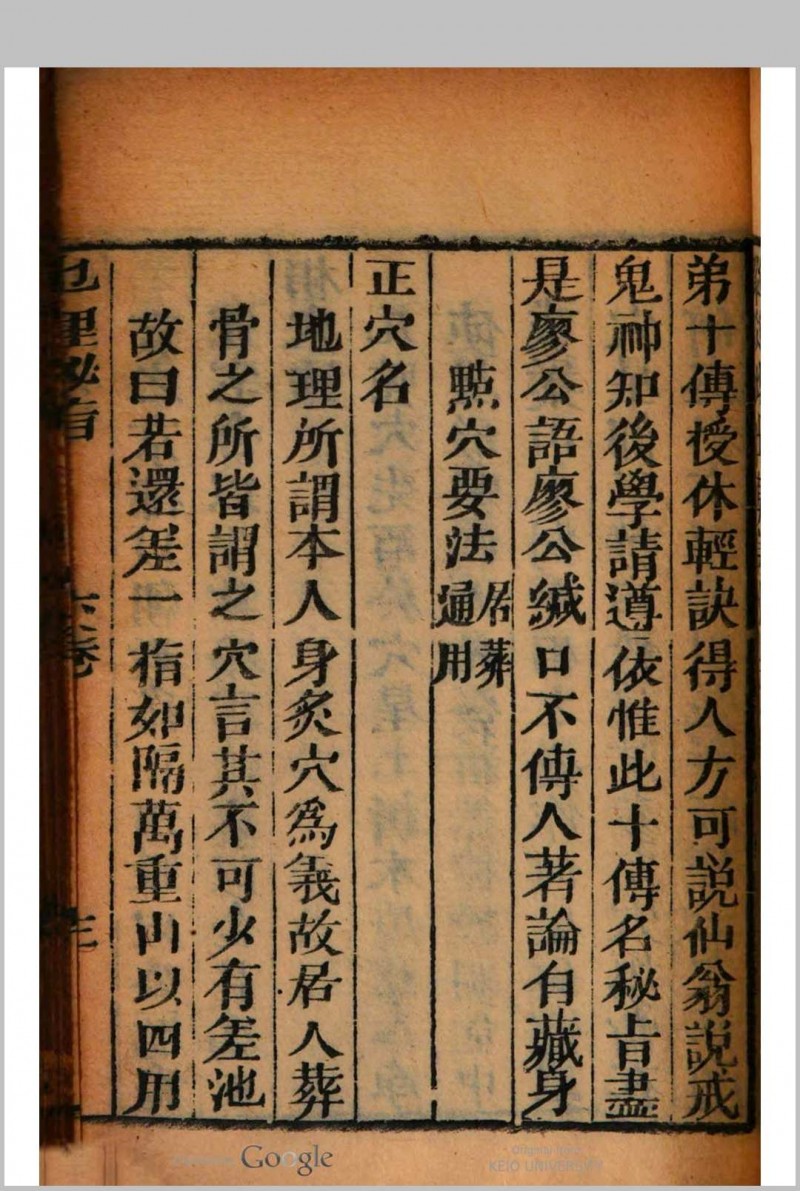 弟十傳授休輕訣得人方可説仙翁説戒
鬼神知後學請遵依惟此十傳名秘旨盡
是廖公語廖公緘口不傳人著論自藏身
點穴要法居葬通用
正穴名
地理所謂本人身炙穴為義故居人葬
骨之所皆謂之穴言其不可少有差池
故曰若還差一指如隔萬重山以四用
地理秘旨
六卷
Google
KEIO UNIVERSITY